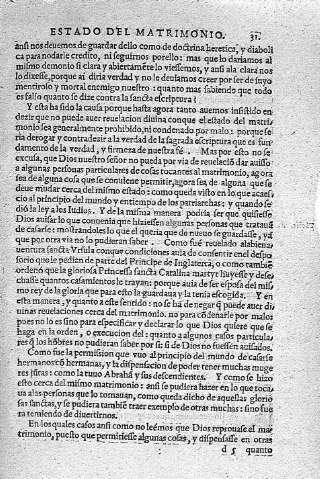 ESTADO DEL MATRIMONIO. 31.
ansi nos deuemos de guardar dello como de doctrina heretica, y diaboli
ca para no darle credito, ni seguirnos por ello: mas que lo dariamos al
mismo demonio si clara y abiertamente lo viessemos, y ansi ala clara nos
lo dixesse, porque aũ diria verdad y no le deuiamos creer por ser de suyo
mentiroso y mortal enemigo nuestro: quanto mas sabiendo que todo
es falso quanto se dize contra la sancta escriptura!
Y esta ha sido la causa porque hasta agora tanto auemos insistido en
dezir que no puede auer reuelacion diuina conque el estado del matri-
monio sea generalmente prohibido, ni condenado por malo: porque se
ria derogar y contradezir a la verdad de la sagrada escriptura que es fun
damento de la verdad, y firmeza de nuestra fe. Mas por esto no se
escusa, que Dios nuestro señor no pueda por via de reuelació dar auiso
a algunas personas particulares de cosas tocantes al matrimonio, agora
sea de alguna cosa que se conuiene permitir, agora sea de alguna que se
deue mudar cerca del mismo estado: como queda visto en lo que acaes
cio al principio del mundo y en tiempo de los patriarchas: y quando se
dió la ley a los Iudios. Y de la misma manera podria ser que quisiesse
Dios auisar lo que conuenia que hiziessen algunas personas que tratauã
de casarse: mostrandoles lo que el queria que de nueuo se guardasse, ya
que por otra via no lo pudieran saber. Como fue reuelado ala bienauen
tura sancta Vrsula conque condiciones auia de consentir en el despo-
sorio que le pedien de parte del Principe de Inglaterra, o como tambiẽ
ordenó que la gloriosa Princessa sancta Catalina martyr huyesse y dese
chasse quantos casamientos le trayan: porque auia de ser esposa del mis
mo rey de la gloria que para esto la guardaua y la tenia escogida. Y en
esta manera, y quanto a este sentido: no se ha de negar q̃ puede auer di
uinas reuelaciones cerca del matrimonio. no para cõdenarle por malo
pues no lo es sino para especificar y declarar lo que Dios quiere que se
haga en la orden, o execucion del: quanto a algunos casos particula-
res q̃ los hõbres no pudieran saber por si: si de Dios no fuessen auisados.
Como fue la permission que vuo al principio del mundo de casarse
hermanos cõ hermanas, y la dispensacion de poder tener muchas muge
res juntas: como la tuuo Abrahã y sus descendientes. Y como se hizo
esto cerca del mismo matrimonio: ansi se pudiera hazer en lo que toca
ua alas personas que lo tomauan, como queda dicho de aquellas glorio
sas sanctas, y se pudiera tambiẽ traer exemplo de otras muchas: sino fue
ra temiendo de diuertirnos.
En los quales casos ansi como no leemos que Dios reprouasse el ma
trimonio, puesto que permitiesse algunas cosas, y dispensasse en otras
d 5 quanto